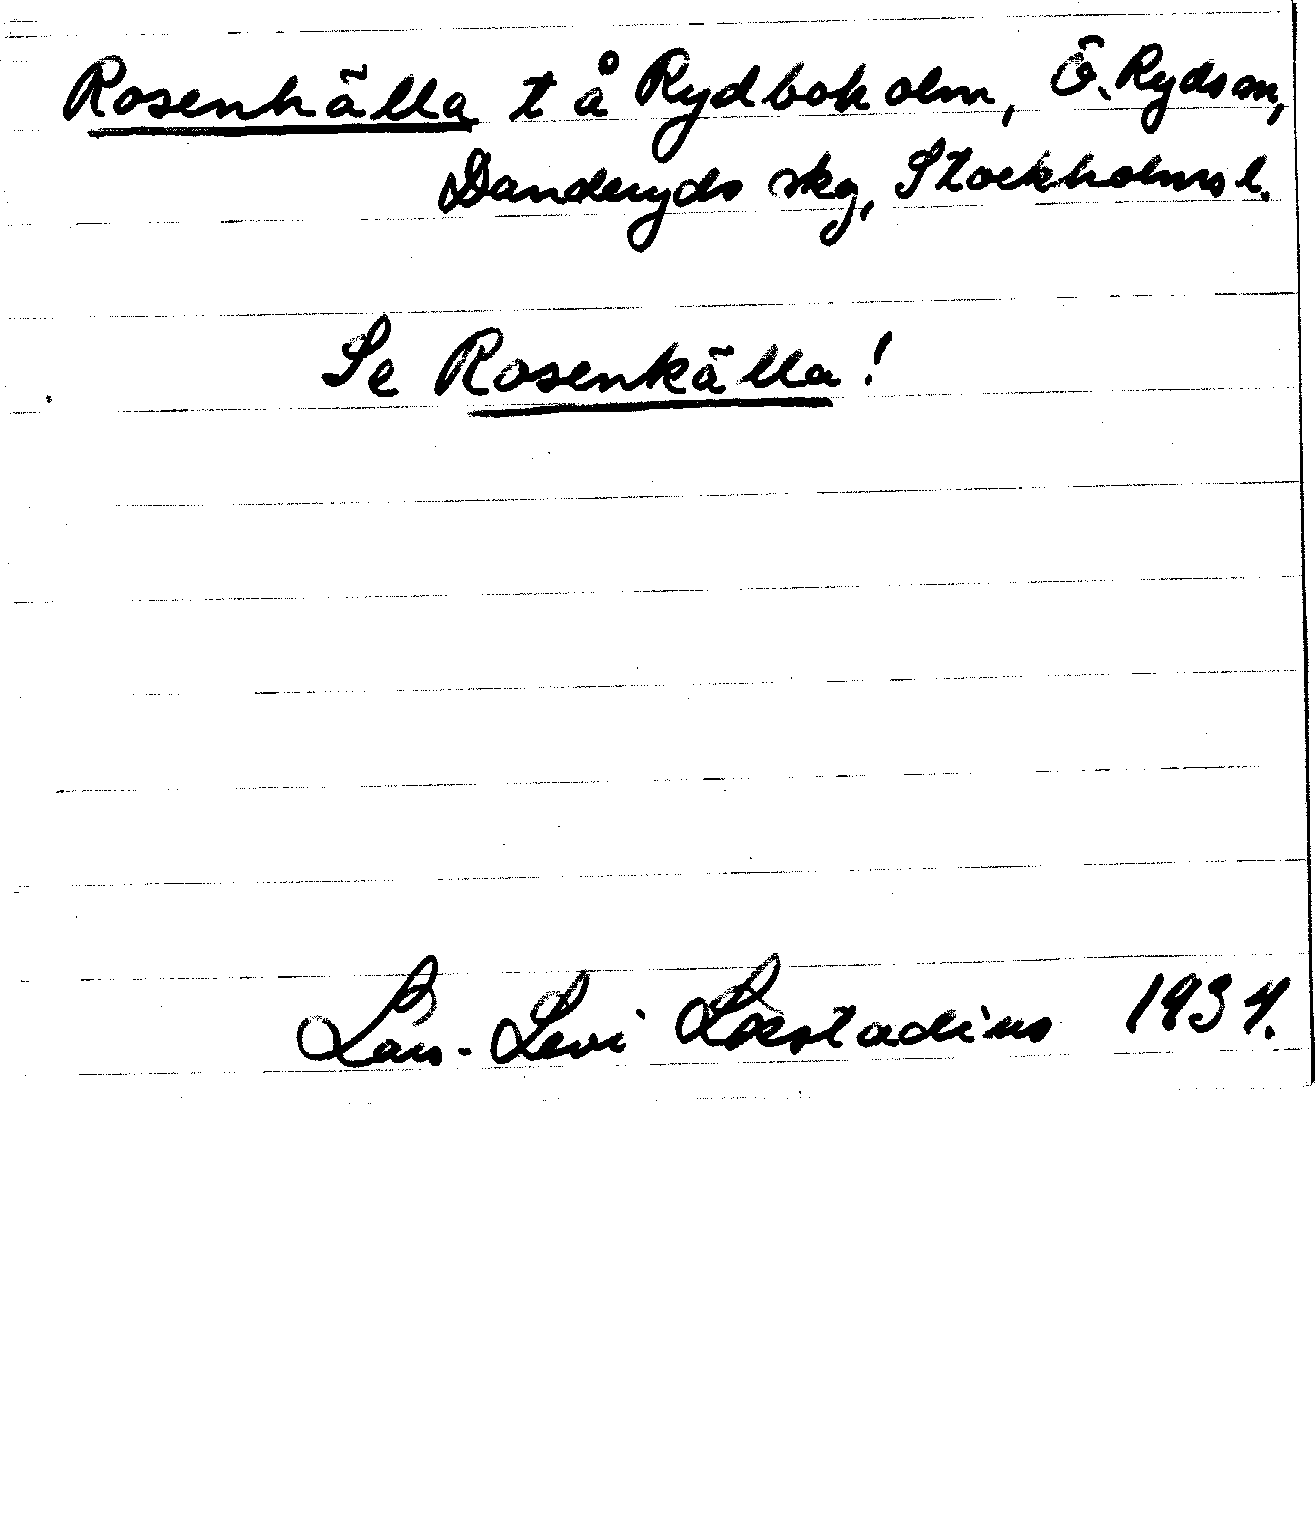 Rosenhälla t å Rydboholm, Ö. Ryds sn,
Danderyds skg, Stockholms l.
Se Rosenkälla!
Lars-Levi Læstadius 1934.